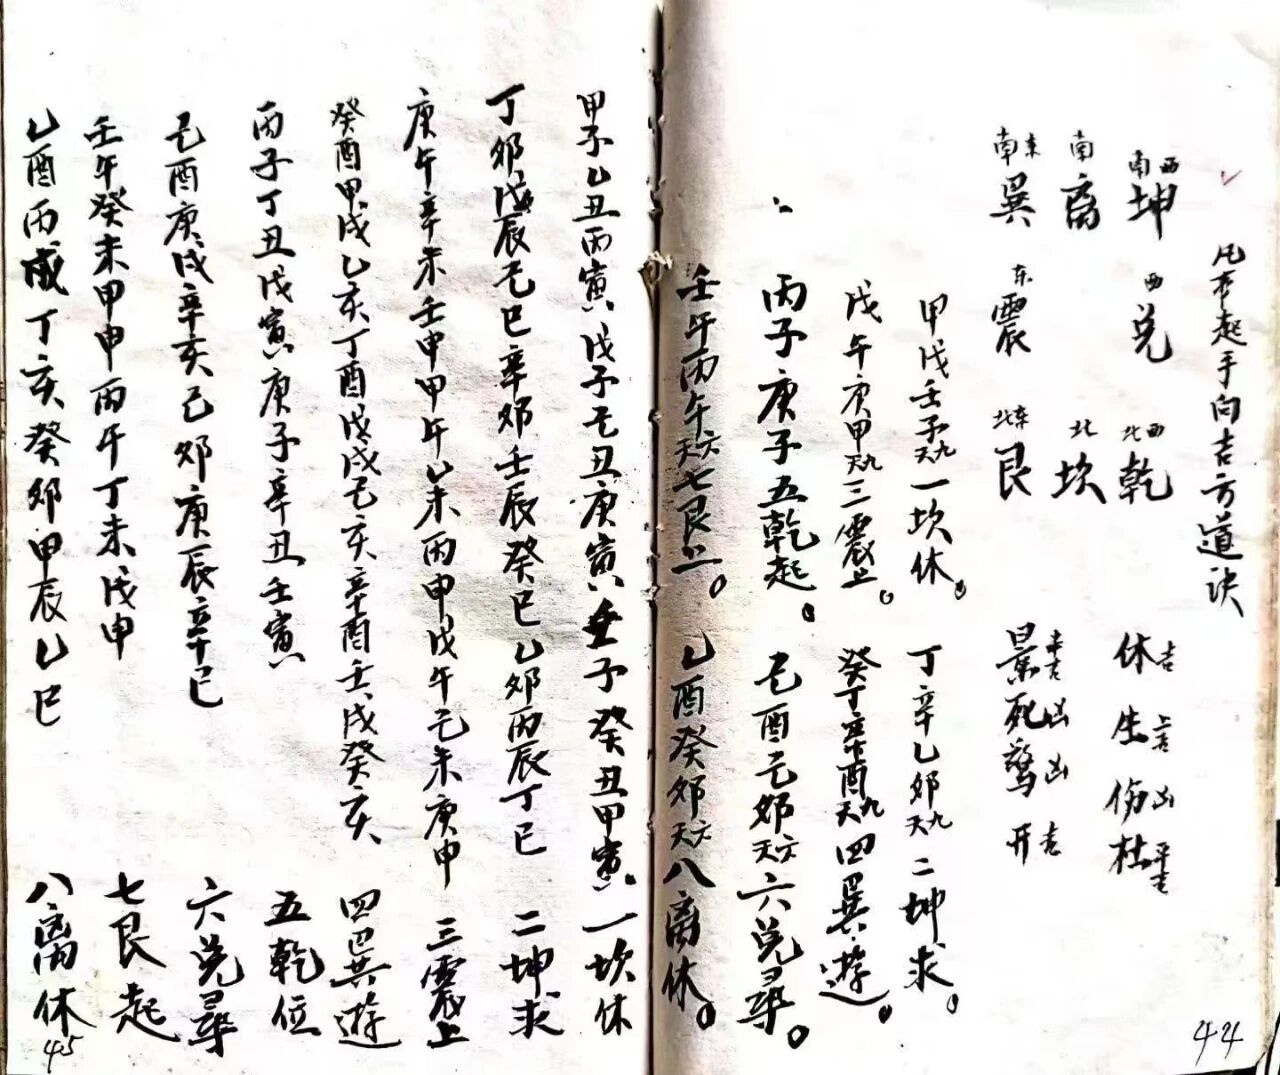 凡事起手向吉方道诀
西南坤 西兑 西北乾
南离 北坎
东南巽 东震 东北艮
休吉 生上吉 伤凶 杜平吉
景平吉 死凶 惊凶 开吉
甲戊壬子天九一坎休。 丁辛乙卯天九二坤求。
戊午庚甲天九三震上。 癸丁辛酉天九四巽游。
丙子庚子五乾起。 己酉己卯天六六兑寻。
壬午丙午天六七艮上。 乙酉癸卯天六八离休。
44
甲子乙丑丙寅戊子己丑庚寅壬子癸丑甲寅 一坎休
丁卯戊辰己巳辛卯壬辰癸巳乙卯丙辰丁巳 二坤求
庚午辛未壬申甲午乙未丙申戊午己未庚申 三震上
癸酉甲戌乙亥丁酉戊戌己亥辛酉壬戌癸亥 四巽游
丙子丁丑戊寅庚子辛丑壬寅 五乾位
己酉庚戌辛亥己卯庚辰辛巳 六兑寻
壬午癸未甲申丙午丁未戊申 七艮起
乙酉丙戌丁亥癸卯甲辰乙巳 八离休
45